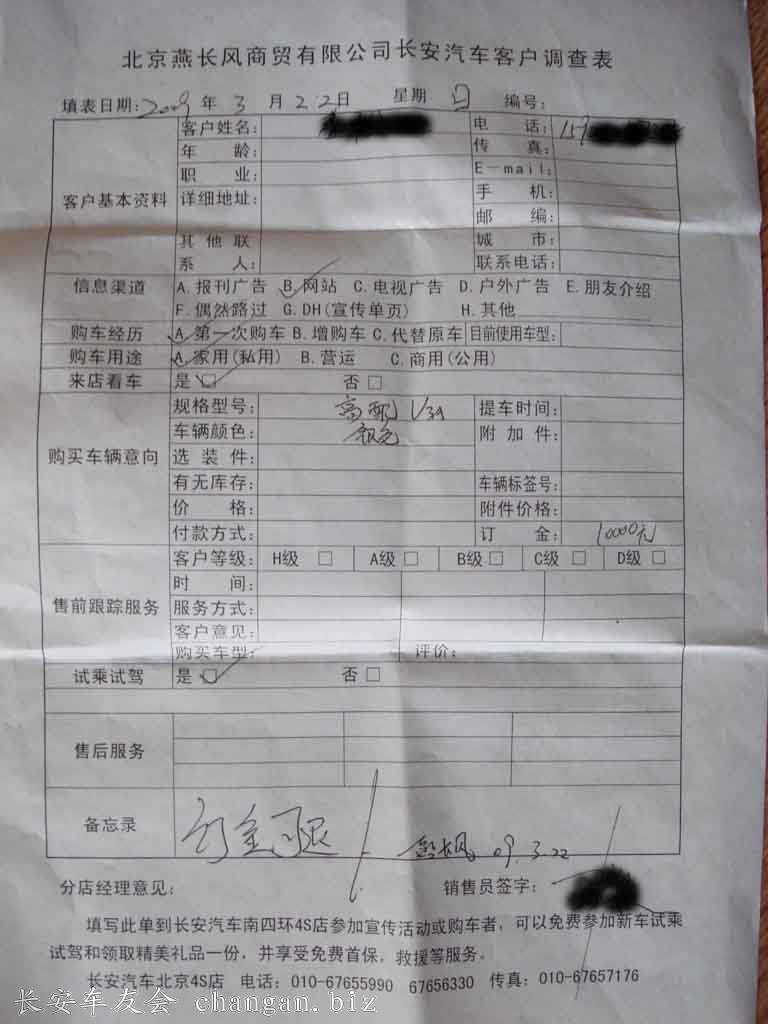 北京燕长风商贸有限公司长安汽车客户调查表
填表日期:2009年3月22日 星期日 编号:
客户基本资料 客户姓名: 电话:159
年龄: 传真:
职业: E-mail:
详细地址: 手机:
邮编:
其他联系人: 城市:
联系电话:
信息渠道 A.报刊广告 B.网站 C.电视广告 D.户外广告 E.朋友介绍
F.偶然路过 G.DH(宣传单页) H.其他
购车经历 A.第一次购车 B.增购车 C.代替原车 目前使用车型:
购车用途 A.家用(私用) B.营运 C.商用(公用)
来店看车 是☑ 否□
购买车辆意向 规格型号: 高配 提车时间:
车辆颜色: 银色 附加件:
选装件:
有无库存: 车辆标签号:
价格: 附件价格:
付款方式: 订金: 10000元
售前跟踪服务 客户等级: H级 □ A级 □ B级 □ C级 □ D级 □
时间:
服务方式:
客户意见:
购买车型: 评价:
试乘试驾 是☑ 否□
售后服务
备忘录 订金可退 09.3.22
分店经理意见: 销售员签字:
填写此单到长安汽车南四环4S店参加宣传活动或购车者,可以免费参加新车试乘
试驾和领取精美礼品一份,并享受免费首保,救援等服务。
长安汽车北京4S店 电话:010-67655990 67656330 传真:010-67657176
长安车友会 changan.biz